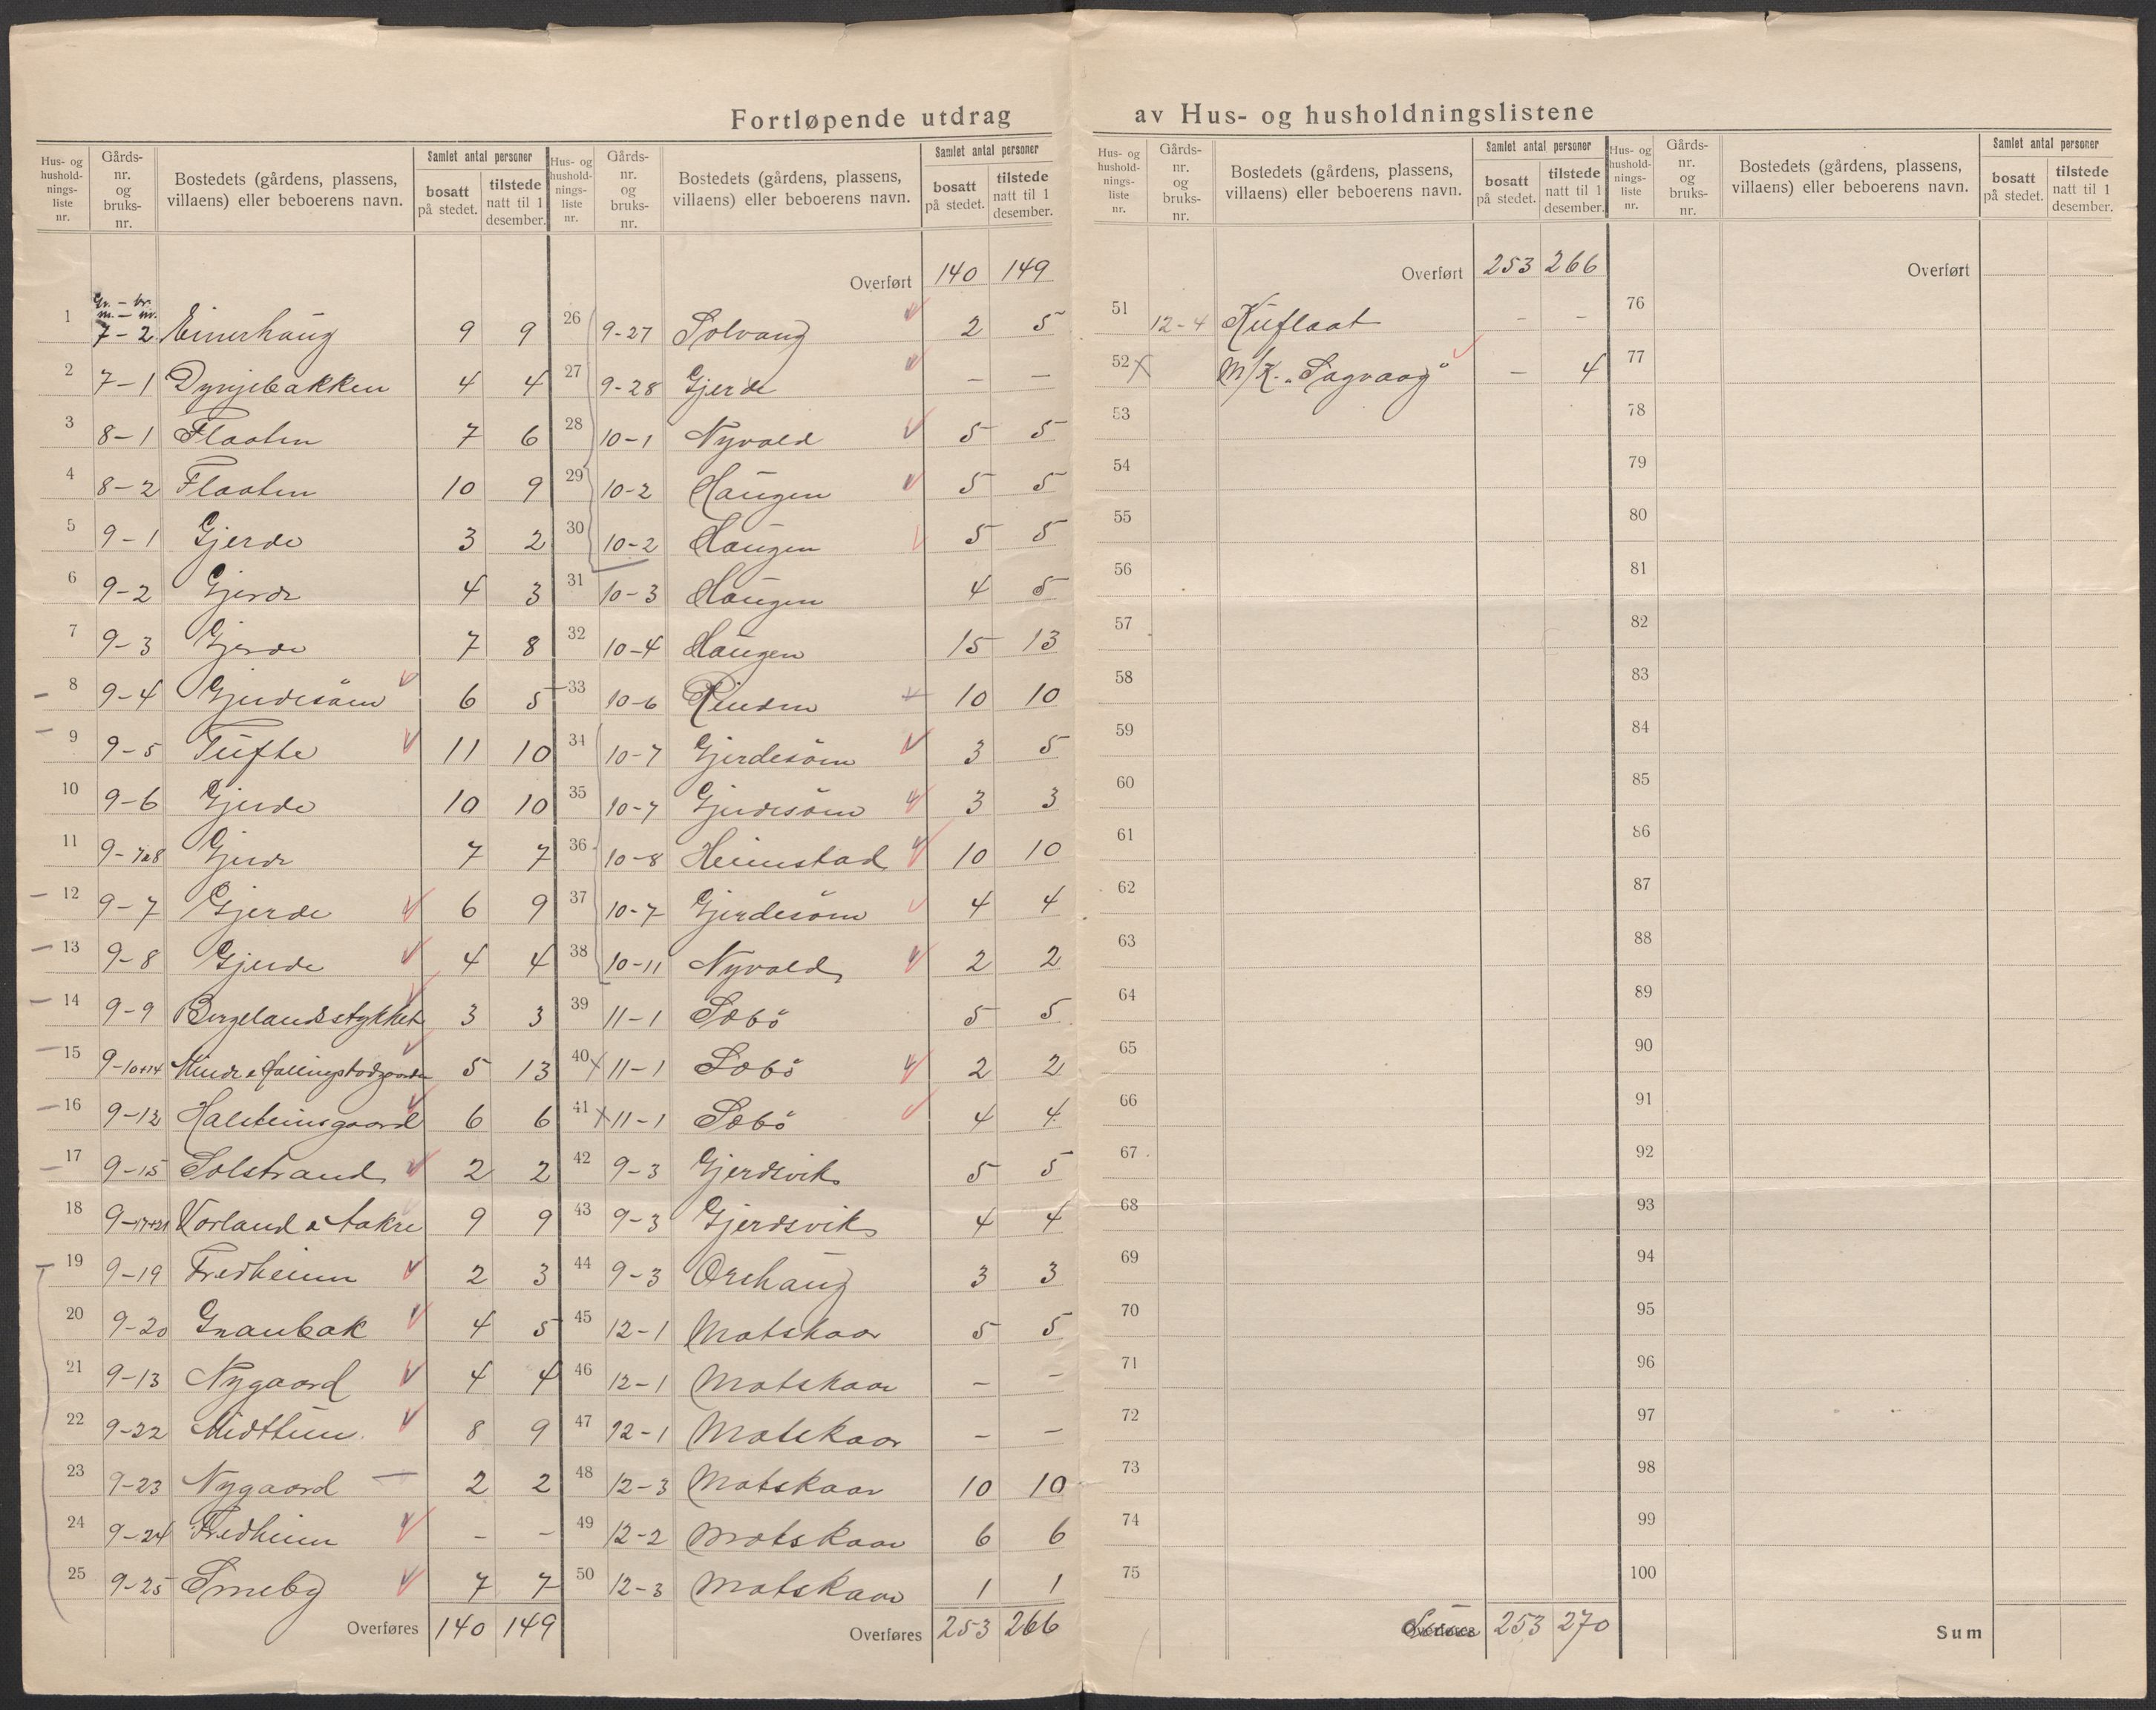 Fortløpende utdrag av Hus- og husholdningslistene
Hus- og husholdningsliste nr. | Gårds-nr. og bruks-nr. | Bostedets (gårdens, plassens, villaens) eller beboerens navn. | Samlet antal personer | bosatt på stedet. | tilstede natt til 1 desember.
Gr. – br.
nr. – nr.
1 7–2 Einerhaug 9 9
2 7–1 Dyngebakken 4 4
3 8–1 Flaaten 7 6
4 8–2 Flaaten 10 9
5 9–1 Gjerde 3 2
6 9–2 Gjerde 4 3
7 9–3 Gjerde 7 8
8 9–4 Gjerdesöm 6 5
9 9–5 Tufte 11 10
10 9–6 Gjerde 10 10
11 9–7a8 Gjerde 7 7
12 9–7 Gjerde 6 9
13 9–8 Gjerde 4 4
14 9–9 Bergelandsstykket 3 3
15 9–10+14 Minde 5 13
16 9–12 Halsteinsgaard 6 6
17 9–15 Solstrand 2 2
18 9–17+21 Vorland & Aakre 9 9
19 9–19 Fredheim 2 3
20 9–20 Granbak 4 5
21 9–13 Nygaard 4 4
22 9–22 Midttun 8 9
23 9–23 Nygaard – 2 2
24 9–24 Fredheim – –
25 9–25 Smeby 7 7
Overføres 140 149
Hus- og husholdningsliste nr. | Gårds-nr. og bruks-nr. | Bostedets (gårdens, plassens, villaens) eller beboerens navn. | Samlet antal personer | bosatt på stedet. | tilstede natt til 1 desember.
Overført 140 149
26 9-27 Solvang 2 5
27 9-28 Gjerde – –
28 10-1 Nyvold 5 5
29 10-2 Haugen 5 5
30 10-2 Haugen 5 5
31 10-3 Haugen 4 5
32 10-4 Haugen 15 13
33 10-6 Rinden 10 10
34 10-7 Gjerdesöm 3 5
35 10-7 Gjerdesöm 3 3
36 10-8 Heimstad 10 10
37 10-7 Gjerdesöm 4 4
38 10-11 Nyvold 2 2
39 11-1 Sæbö 5 5
40 x 11-1 Sæbö 2 2
41 x 11-1 Sæbö 4 4
42 9-3 Gjerdsvik 5 5
43 9-3 Gjerdsvik 4 4
44 9-3 Orehaug 3 3
45 12-1 Matskaar 5 5
46 12-1 Matskaar – –
47 12-1 Matskaar – –
48 12-3 Matskaar 10 10
49 12-2 Matskaar 6 6
50 12-3 Matskaar 1 1
Overføres 253 266
Hus- og husholdningsliste nr. | Gårds-nr. og bruks-nr. | Bostedets (gårdens, plassens, villaens) eller beboerens navn. | Samlet antal personer | bosatt på stedet. | tilstede natt til 1 desember.
Overført 253 266
51 12-4 Kuflaat – –
52 x M/K. „Sagvaag" – 4
53
54
55
56
57
58
59
60
61
62
63
64
65
66
67
68
69
70
71
72
73
74
75
Overføres 253 270
Hus- og husholdningsliste nr. | Gårds-nr. og bruks-nr. | Bostedets (gårdens, plassens, villaens) eller beboerens navn. | Samlet antal personer | bosatt på stedet. | tilstede natt til 1 desember.
Overført
76
77
78
79
80
81
82
83
84
85
86
87
88
89
90
91
92
93
94
95
96
97
98
99
100
Sum